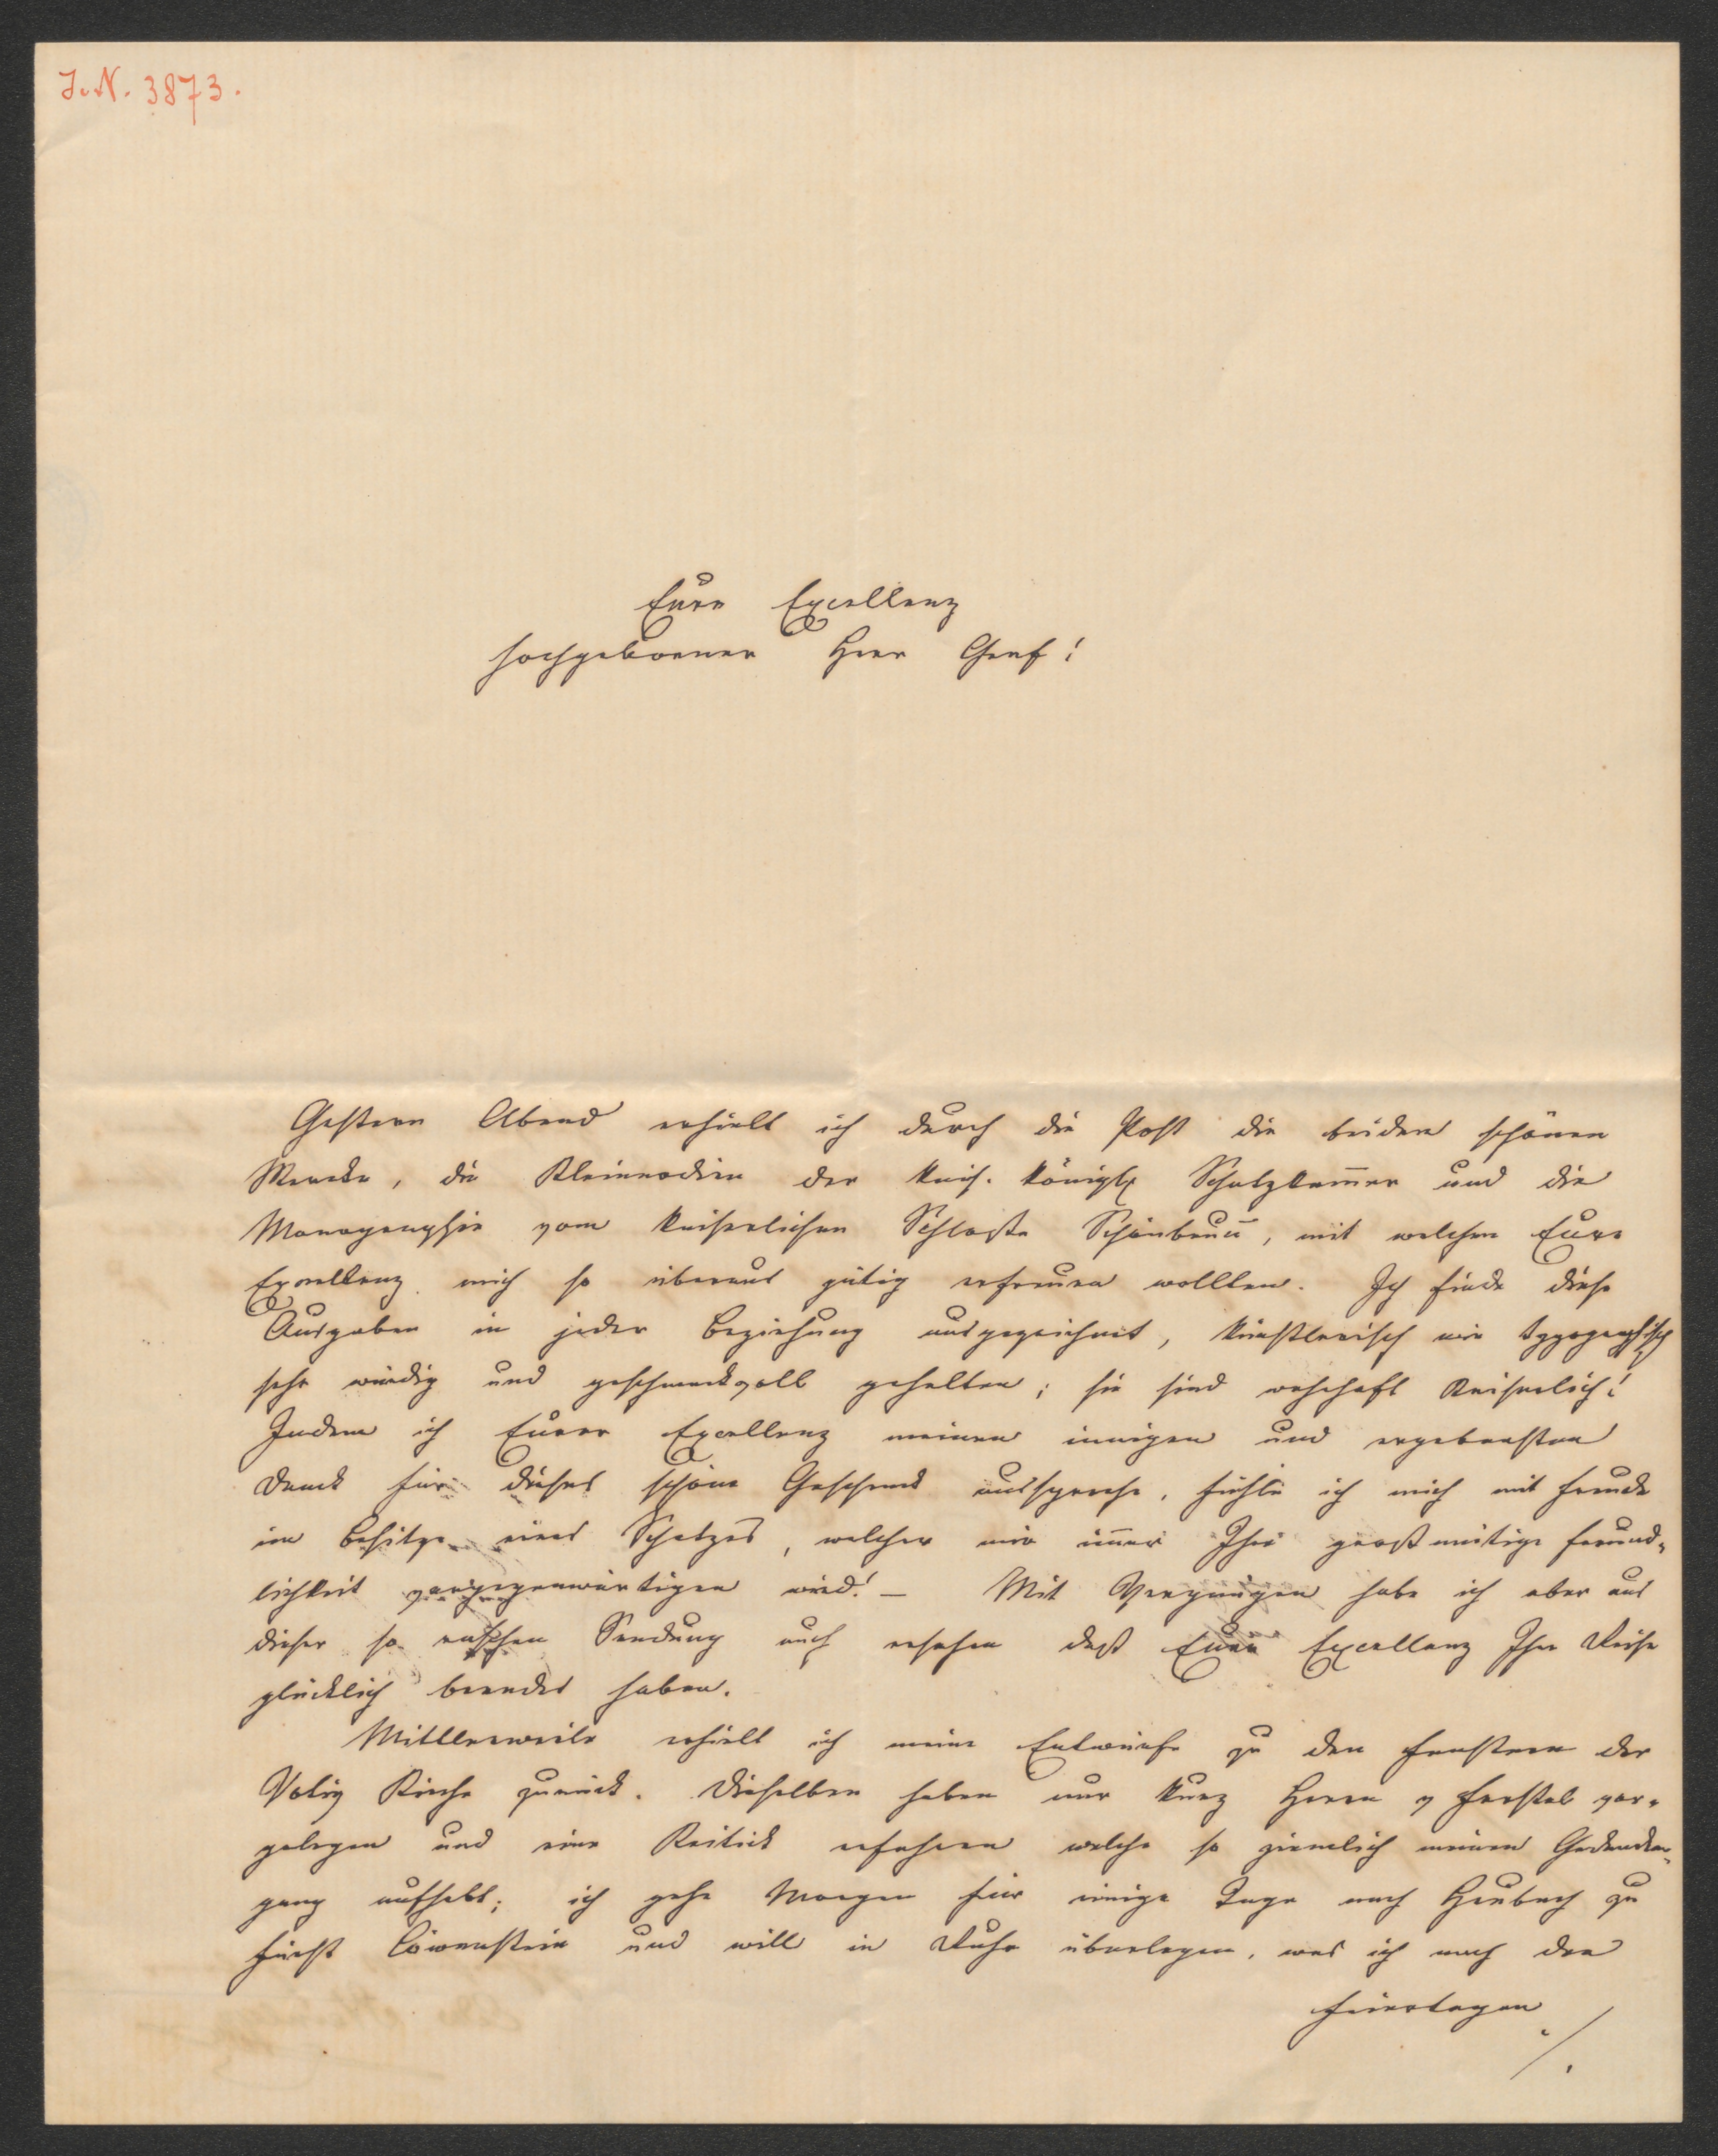 J. N. 3873.
Eure Excellenz
hochgeborener Herr Graf!
Gestern Abend erhielt ich durch die Post die beiden schönen
Wercke, die Kleinodien der kais. königl. Schatzkam̅er und die
Monographie vom kaiserlichen Schloße Schönbrun̅, mit welchen Eure
Excellenz mich so überaus gütig erfreuen wollten. Ich finde diese
Ausgaben in jeder Beziehung ausgezeichnet, künstlerisch wie typographisch
sehr würdig und geschmackvoll gehalten; sie sind wahrhaft Kaiserlich!
Indem ich Eurer Excellenz meinen innigen und ergebensten
Danck für dieses schöne Geschenck ausspreche, fühle ich mich mit Freude
im Besitze eines Schatzes, welcher mir im̅er Ihre großmütige Freund-
lichkeit vergegenwärtigen wird! — Mit Vergnügen habe ich aber aus
dieser so raschen Sendung auch ersehen daß Eure Excellenz Ihre Reise
glücklich beendet haben.
Mittlerweile erhielt ich meine Entwürfe zu den Fenstern der
Votiv Kirche zurück. Dieselben haben nur kurz Herrn v Ferstel vor-
gelegen und eine Kritick erfahren welche so ziemlich meinen Gedancken-
gang aufhebt; ich gehe Morgen für einige Tage nach Heubach zu
Fürst Löwenstein und will in Ruhe überlegen, was ich nach den
Feiertagen
./.